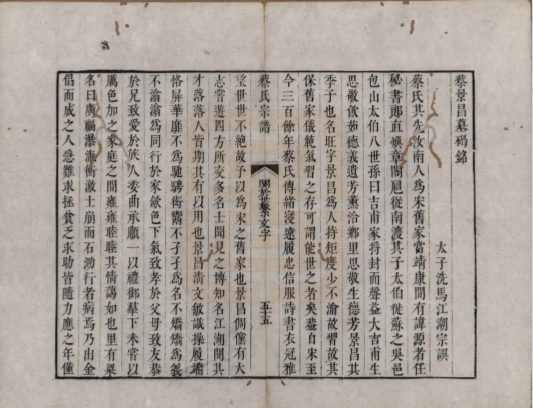 蔡景昌墓碣銘
太子洗馬江潮宗譔
蔡氏其先汝南人為宋舊家當靖康間有諱源者任
秘書郎直煥章閣扈從南渡其子太伯徙蘇之吳邑
包山太伯八世孫曰吉甫家將封而聲益大吉甫生
思敬敬茹德義遺芳薰洽鄉里思敬生德芳景昌其
季子也名旺字景昌為人持矩度少不渝故習故其
保舊家儀範氣習之存可謂能世之者矣蓋自宋至
今三百餘年蔡氏傳緒寖遠履忠信服詩書衣冠雅
蔡氏宗譜
關於世系文字
五十五
望世世不絶故予以為宋之舊家也景昌倜儻有大
志嘗遊四方所交多名士聞見之博知名江湖間其
才落落人皆期其有以用也景昌清文敏識操履端
恪屏華靡不為馳騁衒鬻不孑孑為名不矯矯為義
不滃滃為同行於家歛色下氣致孝於父母致友恭
於兄致愛於族人委曲承順一以禮御羣下未嘗以
厲色加之家庭之間雍雍睦睦其情藹如也里有梁
名曰廣福瀑瀧衝激土崩而石泐行者病焉乃出金
倡而成之人急難求拯貧乏求助皆隨力應之年僅